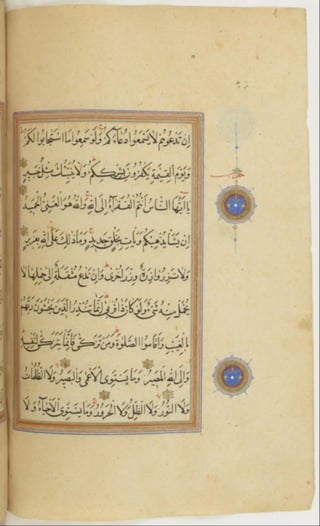 إِن تَدْعُوهُمْ لَا يَسْمَعُوا دُعَاءَكُمْ وَلَوْ سَمِعُوا مَا اسْتَجَابُوا لَكُمْ
وَيَوْمَ الْقِيٰمَةِ يَكْفُرُونَ بِشِرْكِكُمْ وَلَا يُنَبِّئُكَ مِثْلُ خَبِيرٍ
يَا أَيُّهَا النَّاسُ أَنْتُمُ الْفُقَرَاءُ إِلَى اللَّهِ وَاللَّهُ هُوَ الْغَنِيُّ الْحَمِيدُ
إِن يَشَأْ يُذْهِبْكُمْ وَيَأْتِ بِخَلْقٍ جَدِيدٍ وَمَا ذٰلِكَ عَلَى اللَّهِ بِعَزِيزٍ
وَلَا تَزِرُ وَازِرَةٌ وِزْرَ أُخْرَى وَإِن تَدْعُ مُثْقَلَةٌ إِلَى حِمْلِهَا لَا
يُحْمَلْ مِنْهُ شَيْءٌ وَلَوْ كَانَ ذَا قُرْبَى إِنَّمَا تُنْذِرُ الَّذِينَ يَخْشَوْنَ رَبَّهُمْ
بِالْغَيْبِ وَأَقَامُوا الصَّلٰوةَ وَمَنْ تَزَكَّى فَإِنَّمَا يَتَزَكَّى لِنَفْسِهِ
وَإِلَى اللَّهِ الْمَصِيرُ وَمَا يَسْتَوِي الْأَعْمَى وَالْبَصِيرُ وَلَا الظُّلُمَاتُ
وَلَا النُّورُ وَلَا الظِّلُّ وَلَا الْحَرُورُ وَمَا يَسْتَوِي الْأَحْيَاءُ وَلَا